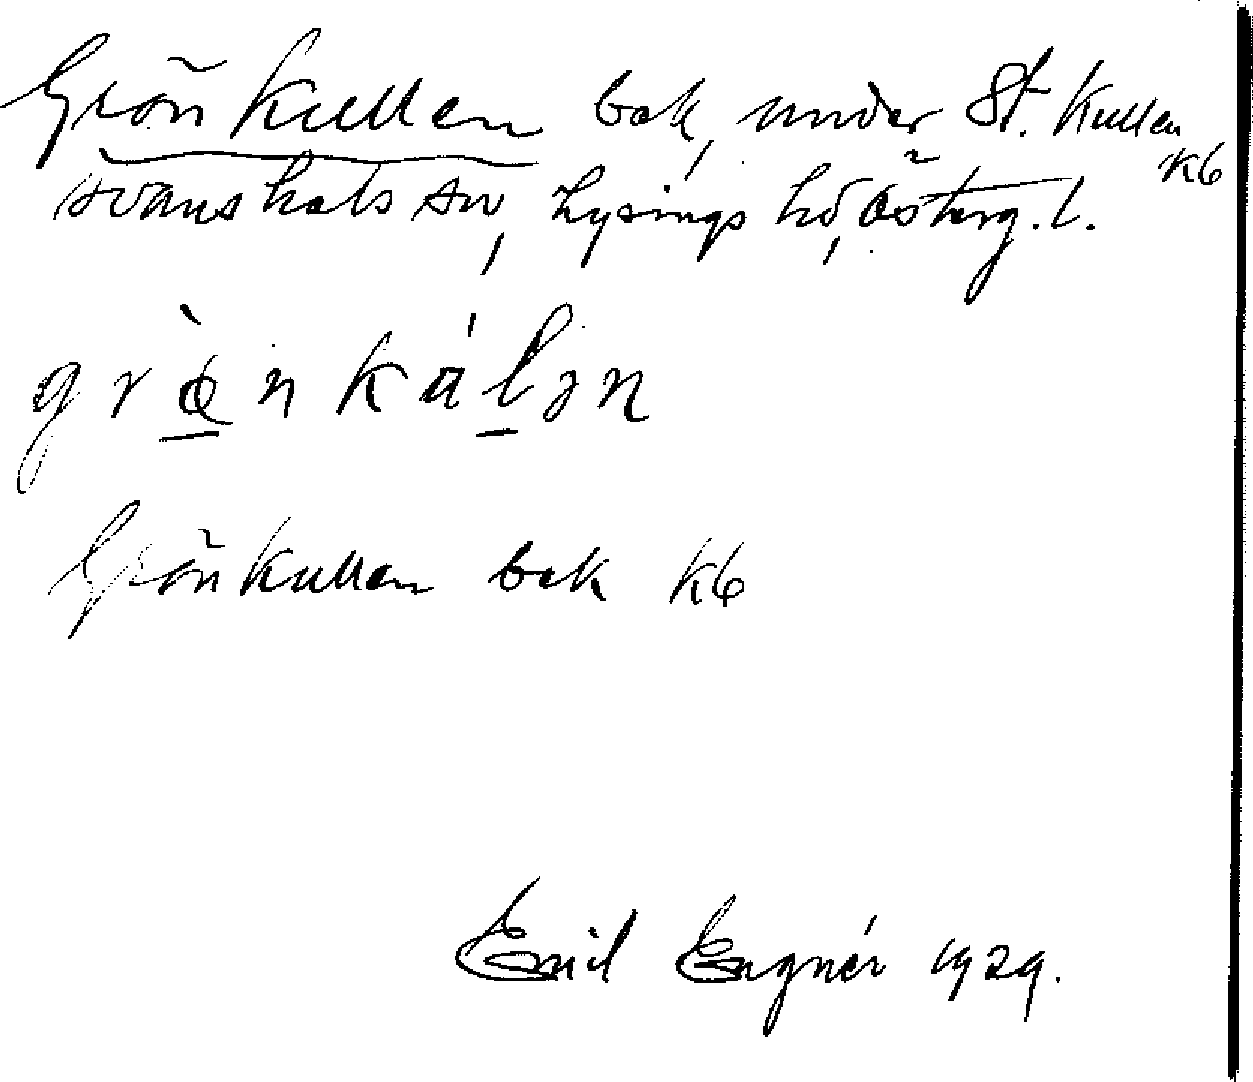 Grönkullen bek, under St. Kullen
kb
Svanshals sn, Lysings hd, Österg. l.
Grönkullen bek kb
Emil Engnér 1929.